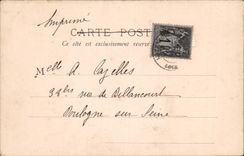 Imprimé
CARTE POST
Ce côté est exclusivement réservé
Melle A. Cazelles
38bis rue de Billancourt
Boulogne sur Seine